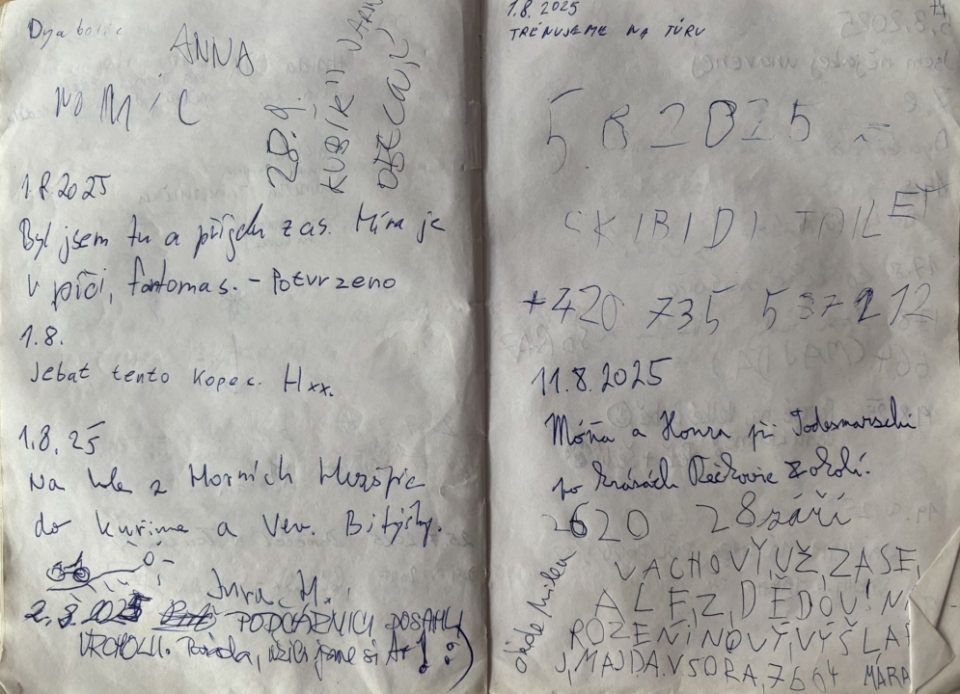 Dyabolic
ANNA
NOMIC
28.9.
KUBÍK"
1.8.2025
Byl jsem tu a přijdu zas. Míra je
v píči, fantomas. - Potvrzeno
1.8.
Jebat tento kopec. Hxx.
1.8.25
Na kole z Horních
do Kuřima a Vev. Bitýšky.
Jura H.
2.8.2025 PODCÁRNÍCI DOSÁHLI
VRCHOLU. Paráda, užili jsme si
1.8.2025
TRÉNUJEME NA TÚRU
5.82025
SKIBIDI TOILET
+420 735 537 212
11.8.2025
Móňa a Honza při Todesmarschi
po krásách Řečkovic z okolí.
2620 28září
VACHOVÝ,UŽ,ZASE,
ALE,Z,DĚDOVÍN
ROZENÍNOVÝ,VÝŠLAP
J,MAJDA.V SORA,7664 MÁRA